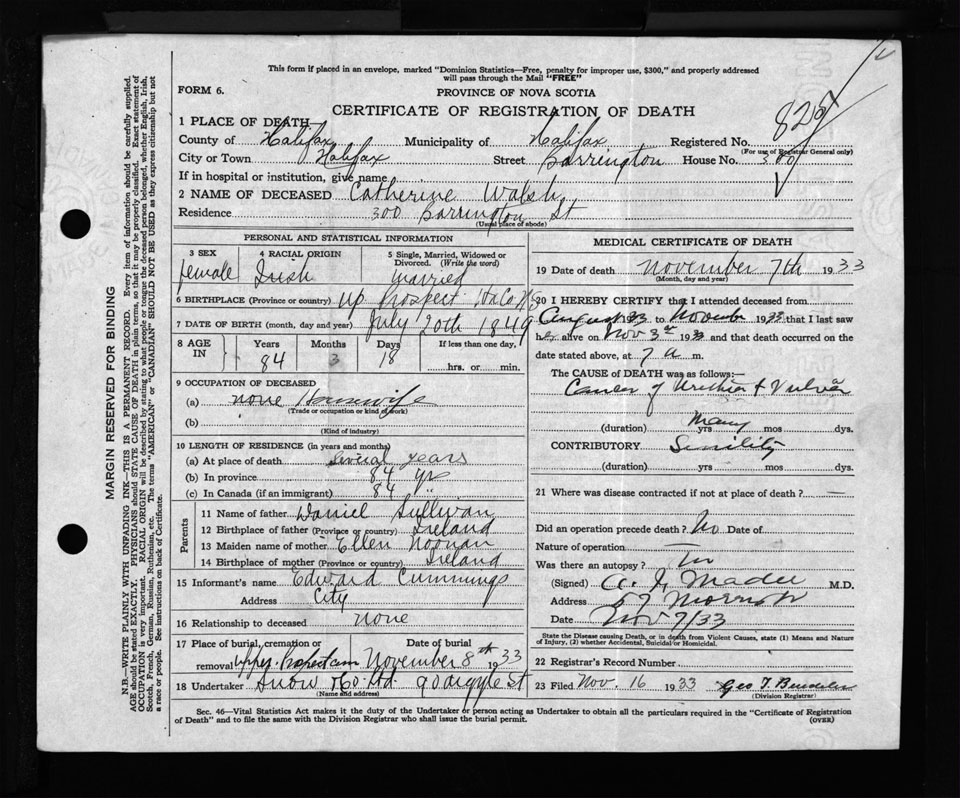 This form if placed in an envelope, marked "Dominion Statistics—Free, penalty for improper use, $300," and properly addressed
will pass through the Mail "FREE"
FORM 6.
PROVINCE OF NOVA SCOTIA
CERTIFICATE OF REGISTRATION OF DEATH
1 PLACE OF DEATH
County of Halifax Municipality of Halifax Registered No. 825
(For use of Registrar General only)
City or Town Halifax Street Barrington House No. 300
If in hospital or institution, give name
2 NAME OF DECEASED Catherine Walsh
Residence 300 Barrington St
(Usual place of abode)
PERSONAL AND STATISTICAL INFORMATION
3 SEX female
4 RACIAL ORIGIN Irish
5 Single, Married, Widowed or Divorced. (Write the word) Married
6 BIRTHPLACE (Province or country) Up Prospect Hx Co NS
7 DATE OF BIRTH (month, day and year) July 20th 1849
8 AGE IN Years 84 Months 3 Days 18 If less than one day, hrs. or min.
9 OCCUPATION OF DECEASED
(a) none Housewife
(Trade or occupation or kind of work)
(b)
(Kind of industry)
10 LENGTH OF RESIDENCE (in years and months)
(a) At place of death several years
(b) In province 84 yrs
(c) In Canada (if an immigrant) 84 "
Parents
11 Name of father Daniel Sullivan
12 Birthplace of father (Province or Country) Ireland
13 Maiden name of mother Ellen Noonan
14 Birthplace of mother (Province or Country) Ireland
15 Informant's name Edward Cummings
Address City
16 Relationship to deceased none
17 Place of burial, cremation or removal Upper Prospect cem Date of burial November 8th 1933
18 Undertaker Snow & Co Ltd. 90 Argyle St
(Name and address)
MEDICAL CERTIFICATE OF DEATH
19 Date of death November 7th 1933
(Month, day and year)
20 I HEREBY CERTIFY that I attended deceased from
August 33 to November 1933 that I last saw
her alive on Nov 3rd 1933 and that death occurred on the
date stated above, at 7 a m.
The CAUSE of DEATH was as follows:—
Cancer of Urethra & Vulva
(duration) Many yrs mos dys.
CONTRIBUTORY Senility
(duration) yrs mos dys.
21 Where was disease contracted if not at place of death? —
Did an operation precede death? No Date of
Nature of operation —
Was there an autopsy? No
(Signed) M.D.
Address 57 Morris St
Date Nov 7/33
State the Disease causing Death, or in death from Violent Causes, state (1) Means and Nature
of Injury, (2) whether Accidental, Suicidal or Homicidal.
22 Registrar's Record Number
23 Filed Nov. 16 1933 Geo T.
(Division Registrar)
Sec. 46—Vital Statistics Act makes it the duty of the Undertaker or person acting as Undertaker to obtain all the particulars required in the "Certificate of Registration
of Death" and to file the same with the Division Registrar who shall issue the burial permit.
(OVER)
MARGIN RESERVED FOR BINDING
N.B.—WRITE PLAINLY WITH UNFADING INK—THIS IS A PERMANENT RECORD. Every item of information should be carefully supplied.
AGE should be stated EXACTLY. PHYSICIANS should STATE CAUSE OF DEATH in plain terms, so that it may be properly classified. Exact statement of
OCCUPATION is very important. RACIAL ORIGIN will be described by stating to what people or tongue the deceased person belonged, whether English, Irish,
Scotch, French, German, Russian, Ruthenian, etc. The terms "AMERICAN" or "CANADIAN" SHOULD NOT BE USED as they express citizenship but not
a race or people. See instructions on back of Certificate.